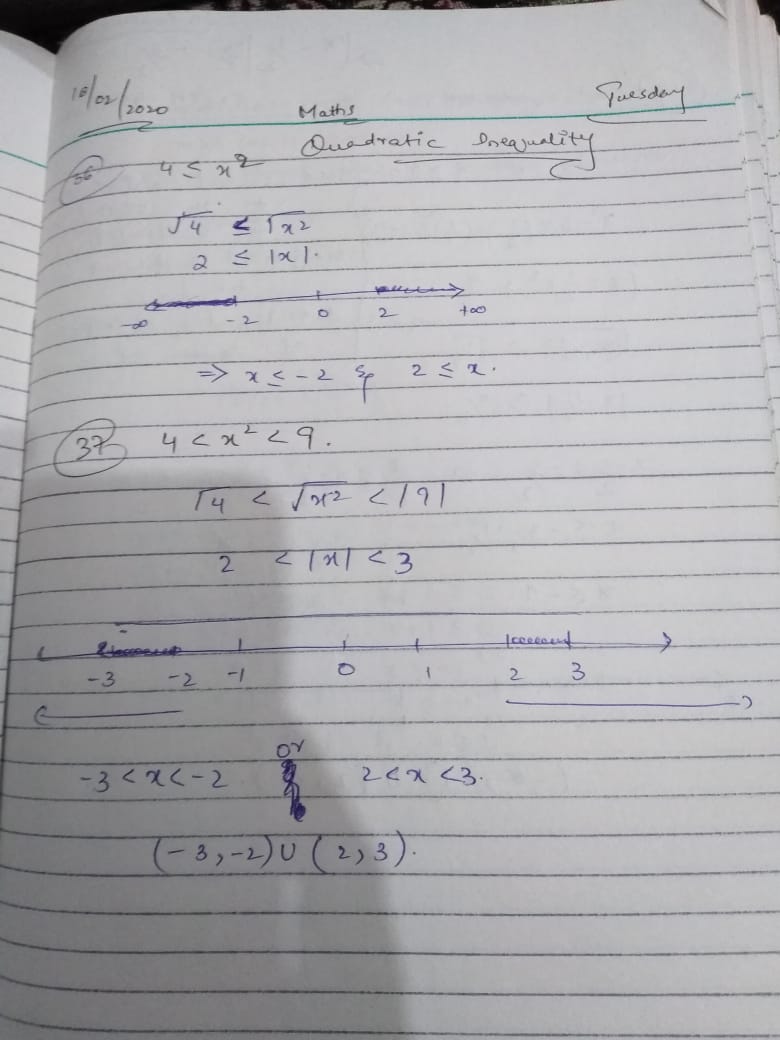 18/02/2020 Maths Tuesday
Quadratic Inequality
36 4 ≤ x²
√4 ≤ √x²
2 ≤ |x|.
-∞ -2 0 2 +∞
⇒ x ≤ -2 & 2 ≤ x.
37 4 < x² < 9.
√4 < √x² < |9|
2 < |x| < 3
-3 -2 -1 0 1 2 3
-3 < x < -2 or 2 < x < 3.
(-3, -2) ∪ (2, 3).